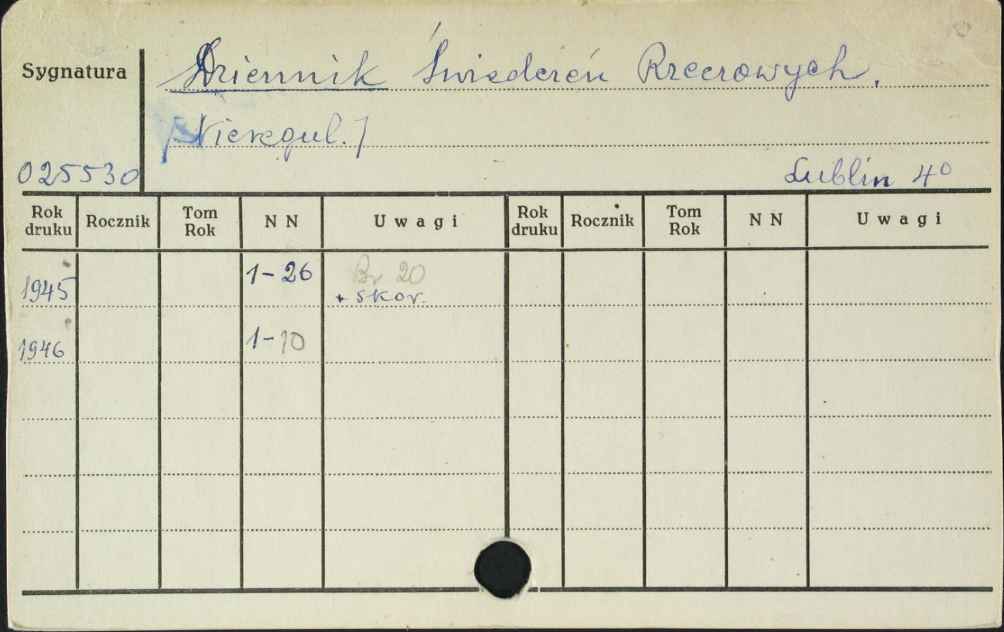 Sygnatura
Dziennik Świadczeń Rzeczowych.
[Nieregul.]
025530
Lublin 4°
Rok druku Rocznik Tom Rok N N Uwagi Rok druku Rocznik Tom Rok N N Uwagi
1945 1-26 Br 20
+ skor.
1946 1-10